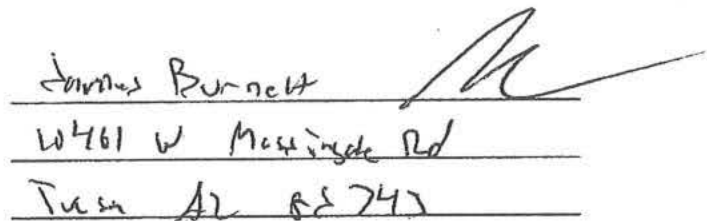 James Burnett
10461 W Massingale Rd
Tucson AZ 85743